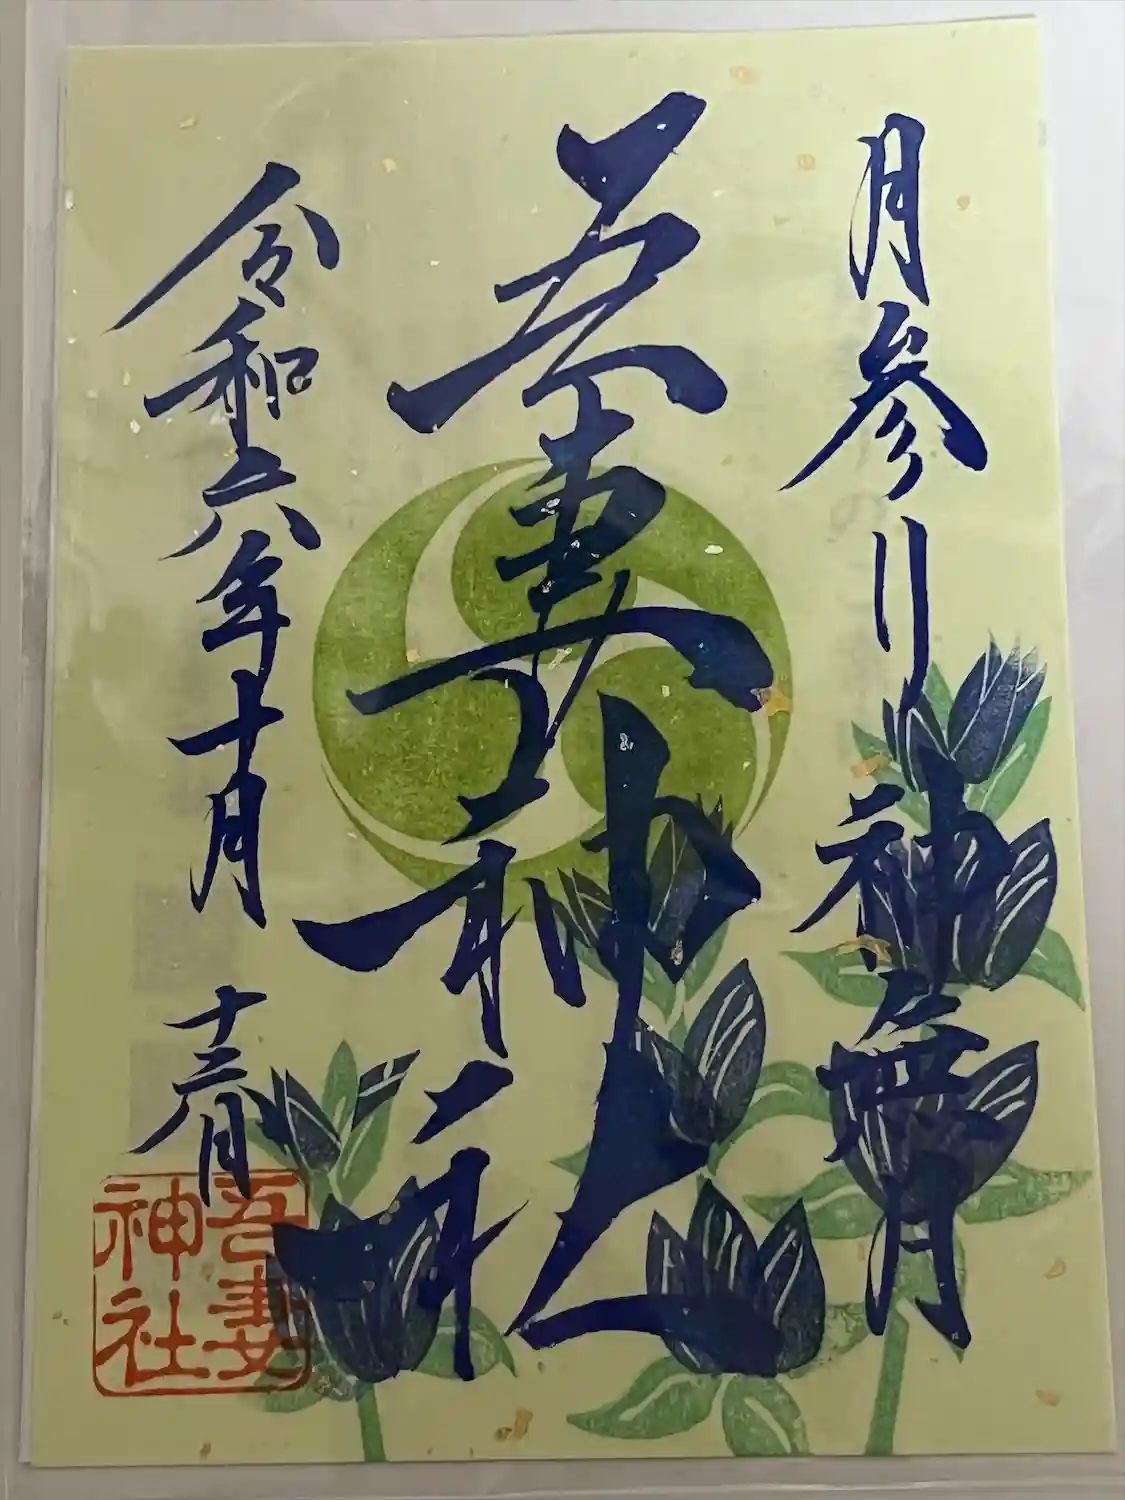 月参り 神無月
吾妻神社
令和六年十月
十三日
吾妻神社